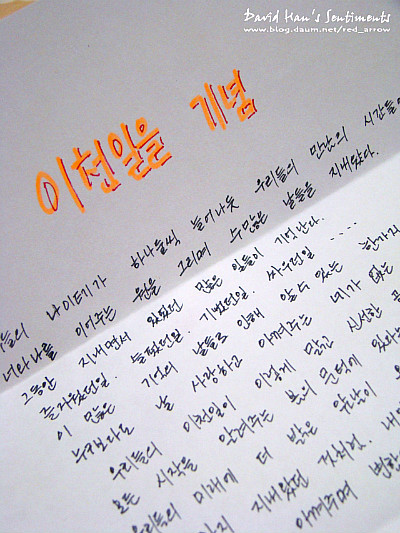 David Han's Sentiments
www.blog.daum.net/red_arrow
이천일을 기념
나이테가 하나둘씩 늘어나듯 우리들의 만남의 시간들이
너와 나를 이어주는 원을 그리며 수많은 날들을 지내왔다.
그동안 지내면서 있었던 많은 일들이 기억난다.
즐거웠던일. 슬펐던일. 기뻤던일. 싸우던일 ....
이 많은 기억의 날들로 인해 알 수 있는 한가지
누구보다도 날 사랑하고 아껴주는 네가 있는
우리들의 이천일이 이렇게 맑고 신선한
모든 시작을 알려주는 봄의 문턱에
우리들의 미래에 더 밝은
지내왔던 것처럼. 내
아껴주며